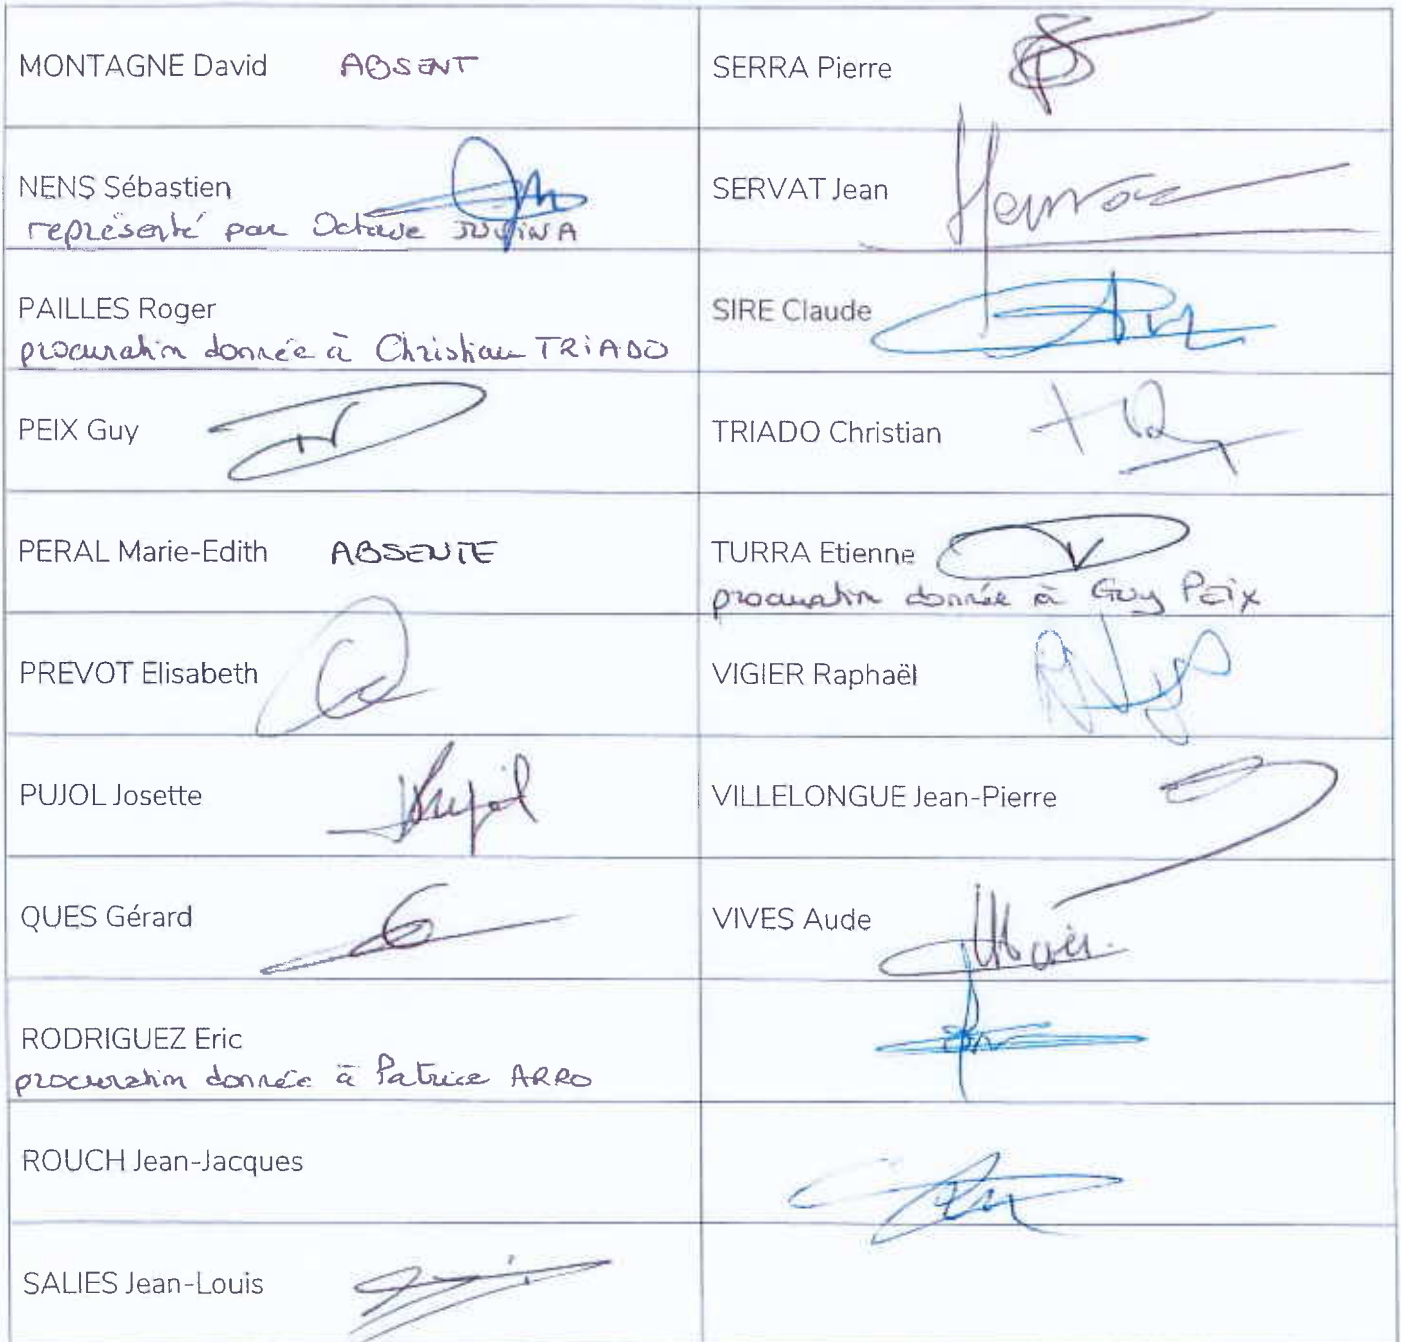 MONTAGNE David ABSENT
SERRA Pierre
NENS Sébastien
représenté par Octave
SERVAT Jean
PAILLES Roger
procuration donnée à Christian TRIADO
SIRE Claude
PEIX Guy
TRIADO Christian
PERAL Marie-Edith ABSENTE
TURRA Etienne
procuration donnée à Guy PEiX
PREVOT Elisabeth
VIGIER Raphaël
PUJOL Josette
VILLELONGUE Jean-Pierre
QUES Gérard
VIVES Aude
RODRIGUEZ Eric
procuration donnée à Patrice ARRO
ROUCH Jean-Jacques
SALIES Jean-Louis